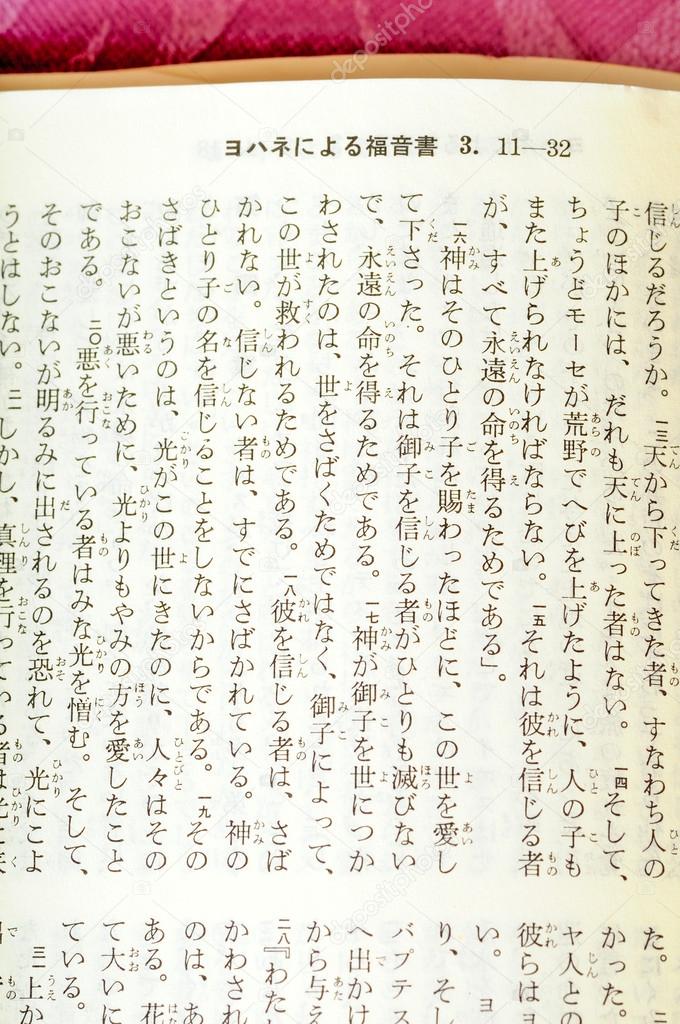 ヨハネによる福音書 3. 11―32
信じるだろうか。 一三天から下ってきた者、すなわち人の
子のほかには、だれも天に上った者はない。 一四そして、
ちょうどモーセが荒野でへびを上げたように、人の子も
また上げられなければならない。 一五それは彼を信じる者
が、すべて永遠の命を得るためである」。
一六神はそのひとり子を賜わったほどに、この世を愛し
て下さった。それは御子を信じる者がひとりも滅びない
で、永遠の命を得るためである。 一七神が御子を世につか
わされたのは、世をさばくためではなく、御子によって、
この世が救われるためである。 一八彼を信じる者は、さば
かれない。信じない者は、すでにさばかれている。神の
ひとり子の名を信じることをしないからである。 一九その
さばきというのは、光がこの世にきたのに、人々はその
おこないが悪いために、光よりもやみの方を愛したこと
である。 二〇悪を行っている者はみな光を憎む。そして、
そのおこないが明るみに出されるのを恐れて、光にこよ
うとはしない。 二一しかし、真理を行っている者は光に
た。
かった。
ヤ人との
彼らはヨ
い。ヨ
り、そし
バプテス
へ出かけ
から与え
二八『わた
かわされ
のは、あ
ある。花
て大いに
ている。
三一上か
depositphotos